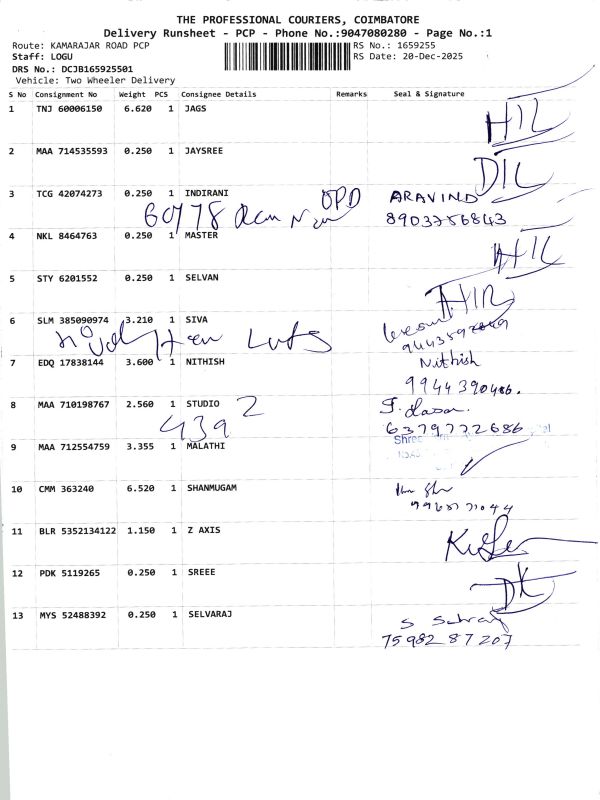 THE PROFESSIONAL COURIERS, COIMBATORE
Delivery Runsheet - PCP - Phone No.:9047080280 - Page No.:1
Route: KAMARAJAR ROAD PCP RS No.: 1659255
Staff: LOGU RS Date: 20-Dec-2025
DRS No.: DCJB165925501
Vehicle: Two Wheeler Delivery
S No Consignment No Weight PCS Consignee Details Remarks Seal & Signature
1 TNJ 60006150 6.620 1 JAGS
2 MAA 714535593 0.250 1 JAYSREE
3 TCG 42074273 0.250 1 INDIRANI OPD ARAVIND
8903756843
4 NKL 8464763 0.250 1 MASTER
5 STY 6201552 0.250 1 SELVAN
6 SLM 385090974 3.210 1 SIVA
7 EDQ 17838144 3.600 1 NITHISH Nithish
9944390486.
8 MAA 710198767 2.560 1 STUDIO
4392 6379772686
9 MAA 712554759 3.355 1 MALATHI
10 CMM 363240 6.520 1 SHANMUGAM
11 BLR 5352134122 1.150 1 Z AXIS
12 PDK 5119265 0.250 1 SREEE
13 MYS 52488392 0.250 1 SELVARAJ
75982 87207